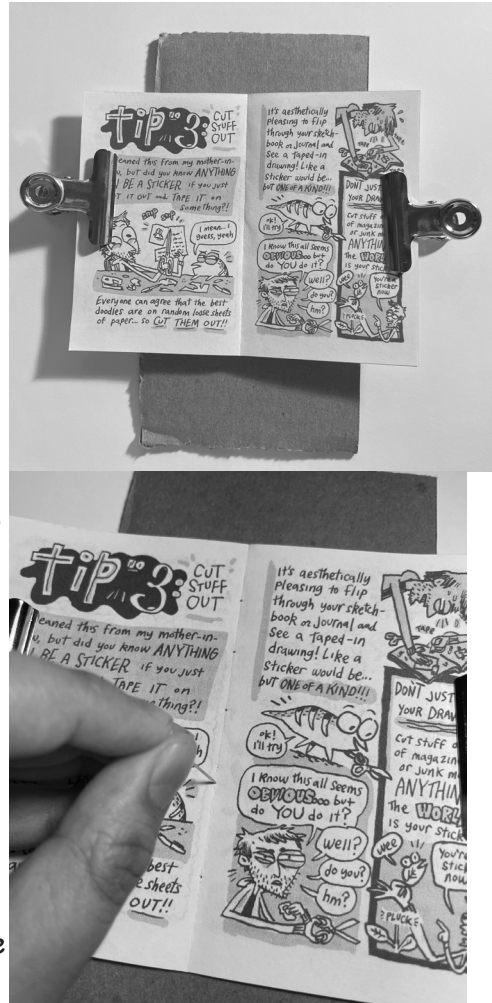 tip no 3:
CUT
STUFF
OUT
eaned this from my mother-in-
, but did you know ANYTHING
BE A STICKER if you just
IT OUT and TAPE IT on
something?!
SNIP SNIP
I mean... I
guess, yeah
Everyone can agree that the best
doodles are on random loose sheets
of paper... so CUT THEM OUT!!
It's aesthetically
pleasing to flip
through your sketch-
book or journal and
see a taped-in
drawing! Like a
sticker would be...
but ONE OF A KIND!!!
ok!
i'll try
I know this all seems
OBVIOUS... but
do YOU do it?
well?
do you?
hm?
TAPE
DON'T JUST
YOUR DRAW
cut stuff
of magazin
or junk m
ANYTHIN
The WORL
is your stick
wee
you're a
sticker
now
PLUCK
tip no 3:
CUT
STUFF
OUT
eaned this from my mother-in-
, but did you know ANYTHING
BE A STICKER if you just
TAPE IT on
thing?!
h
best
e sheets
OUT!!
It's aesthetically
pleasing to flip
through your sketch-
book or journal and
see a taped-in
drawing! Like a
sticker would be...
but ONE OF A KIND!!!
ok!
i'll try
I know this all seems
OBVIOUS... but
do YOU do it?
well?
do you?
hm?
TAPE
DON'T JUST
YOUR DRAW
cut stuff
of magazin
or junk m
ANYTHIN
The WORL
is your stick
wee
you're
stick
now
PLUCK
e